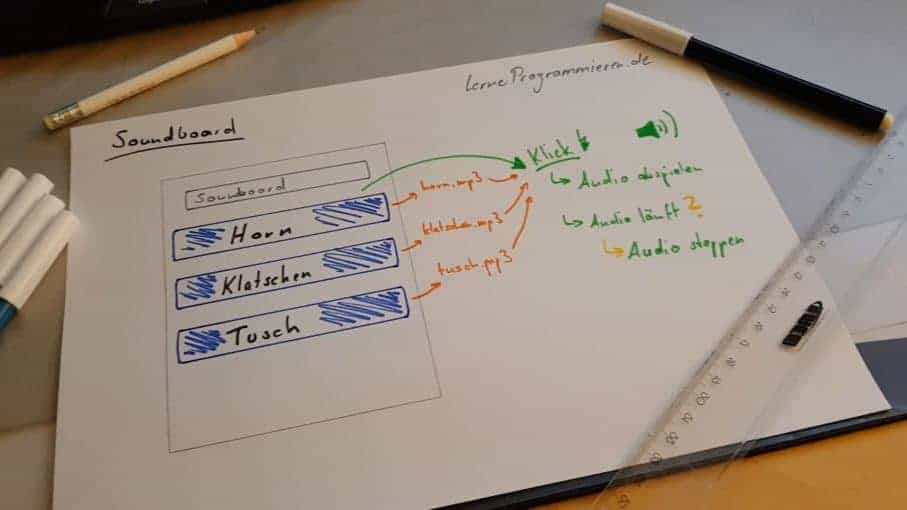 lerneProgrammieren.de
Soundboard
Soundboard
Horn
Klatschen
Tusch
horn.mp3
klatschen.mp3
tusch.mp3
Klick
↳ Audio abspielen
↳ Audio läuft?
↳ Audio stoppen